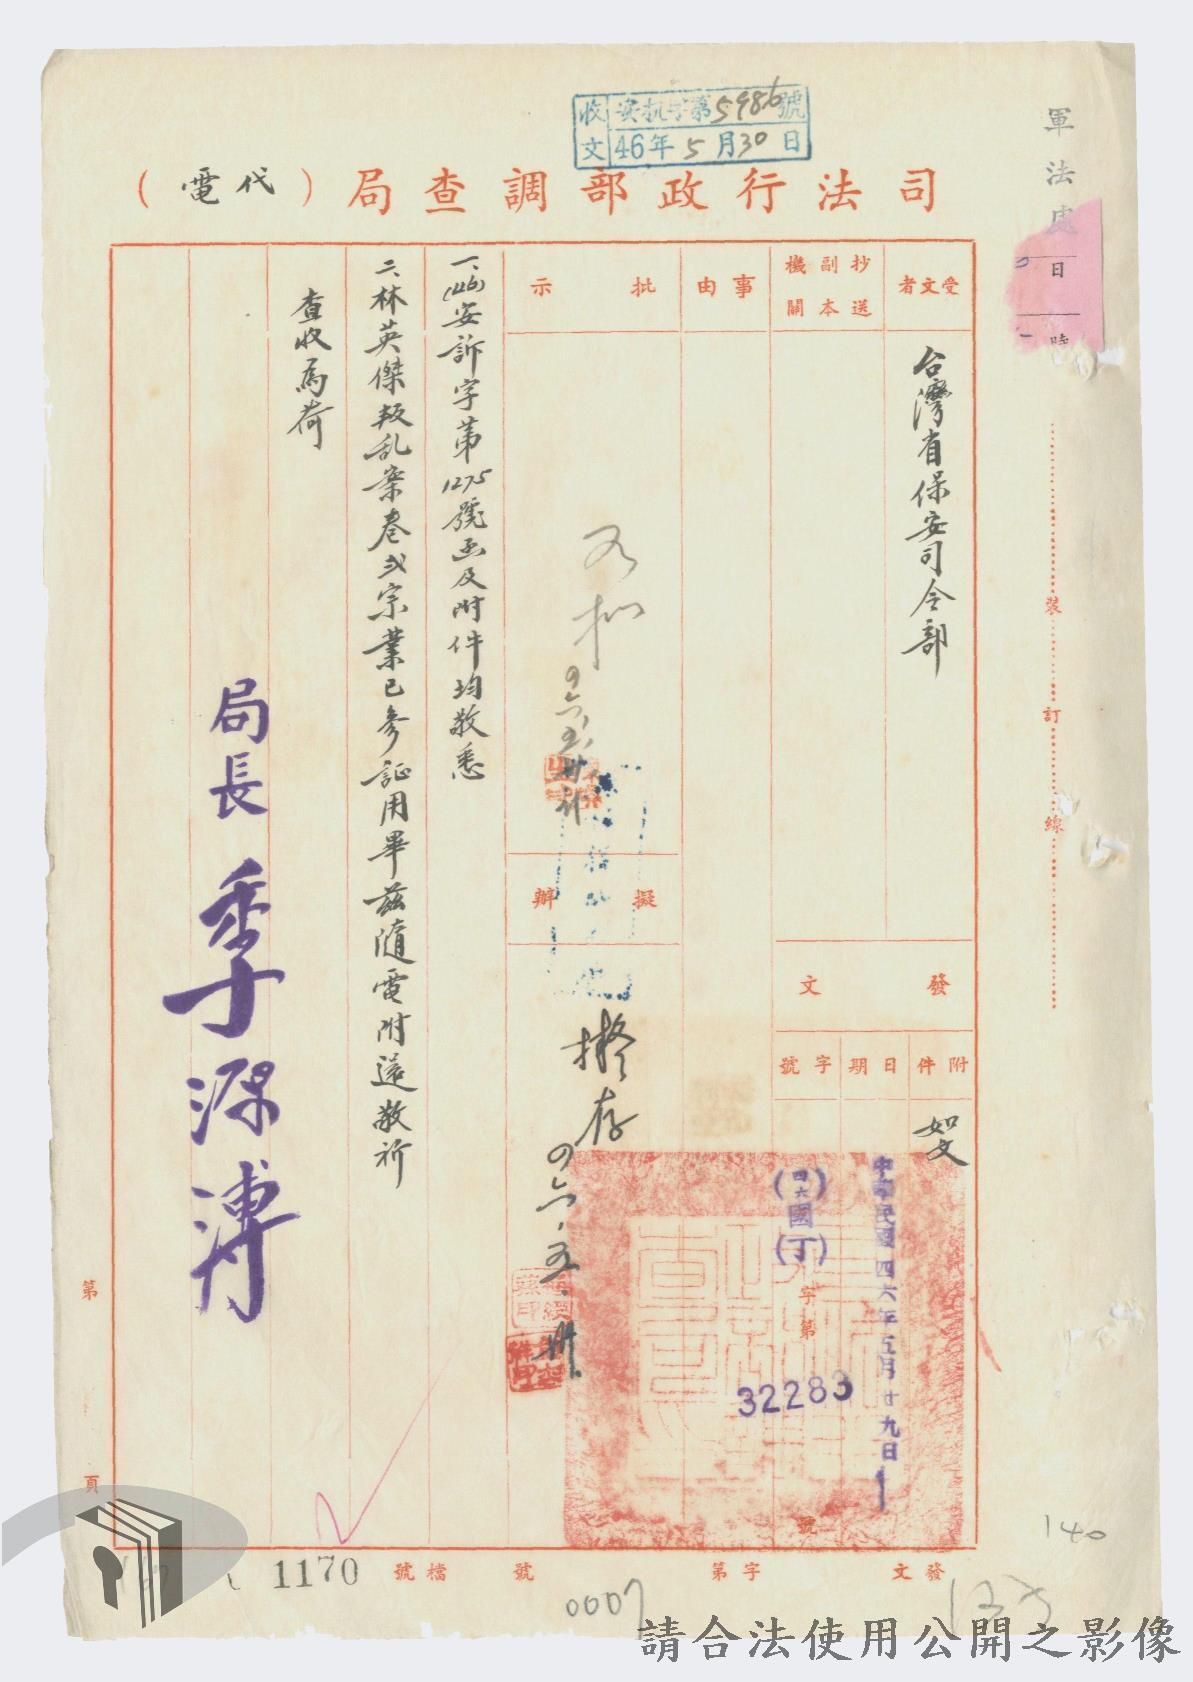 收文 安執字第5986號
46年5月30日
司法行政部調查局（代電）
軍法處
日
時
受文者
台灣省保安司令部
抄送副本機關
事由
批示
擬辦
擬存
四六.五.卅.
發文
附件
如文
日期
中華民國四六年五月廿九日
字號
(四六)國(丁)字第32283號
一、(46)安訴字第1275號函及附件均敬悉
二、林英傑叛乱案卷弍宗業已參証用畢茲隨電附送敬祈
查收為荷
局長 季源溥
裝
訂
線
第
頁
發文
字第
號
檔號
1170
0007
140
請合法使用公開之影像